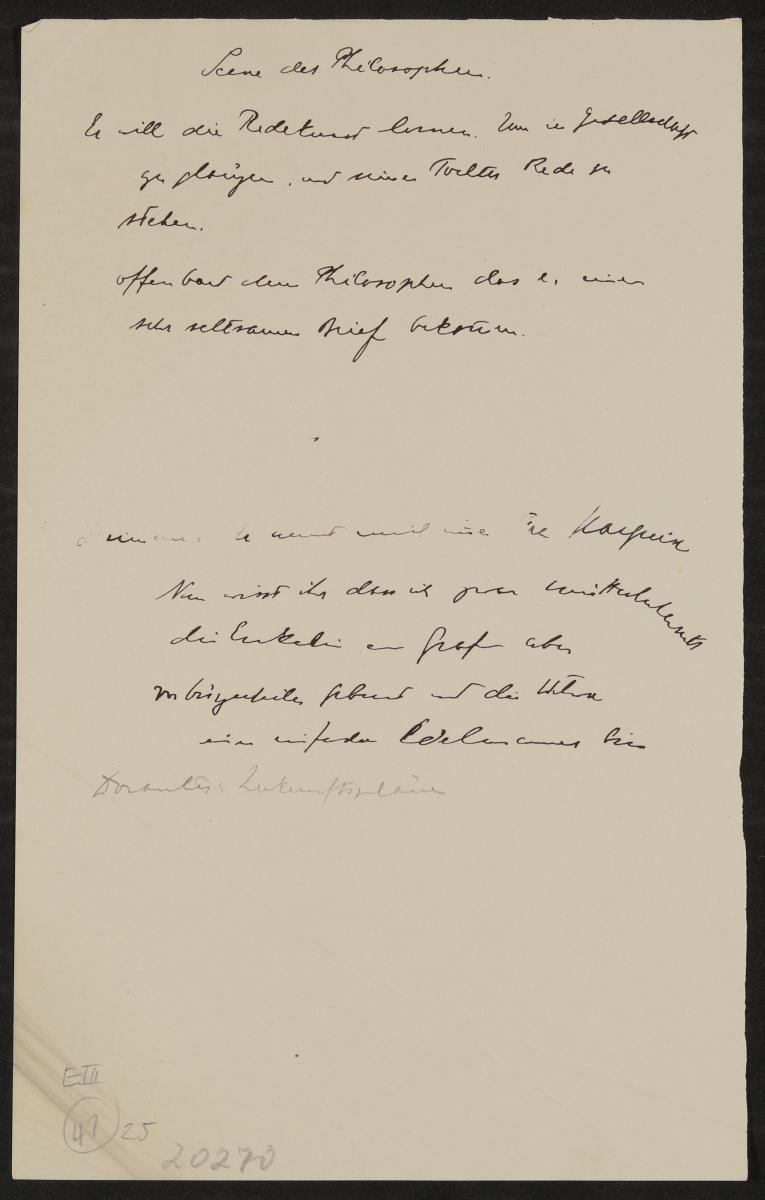 Scene des Philosophen.
Er will die Redekunst lernen. Um in Gesellschaft
zu glänzen, und seiner Tochter Rede zu
stehen.
offenbart dem Philosophen das er einen
sehr seltsamen Brief bekomm.
Er nennt mich eine
Nun wisst ihr dass ich zwar
die Enkelin ein Graf aber
und die Witwe
eines einfachen Edelmannes bin
Dorantes: Zukunftspläne
EIII
41 25
20270